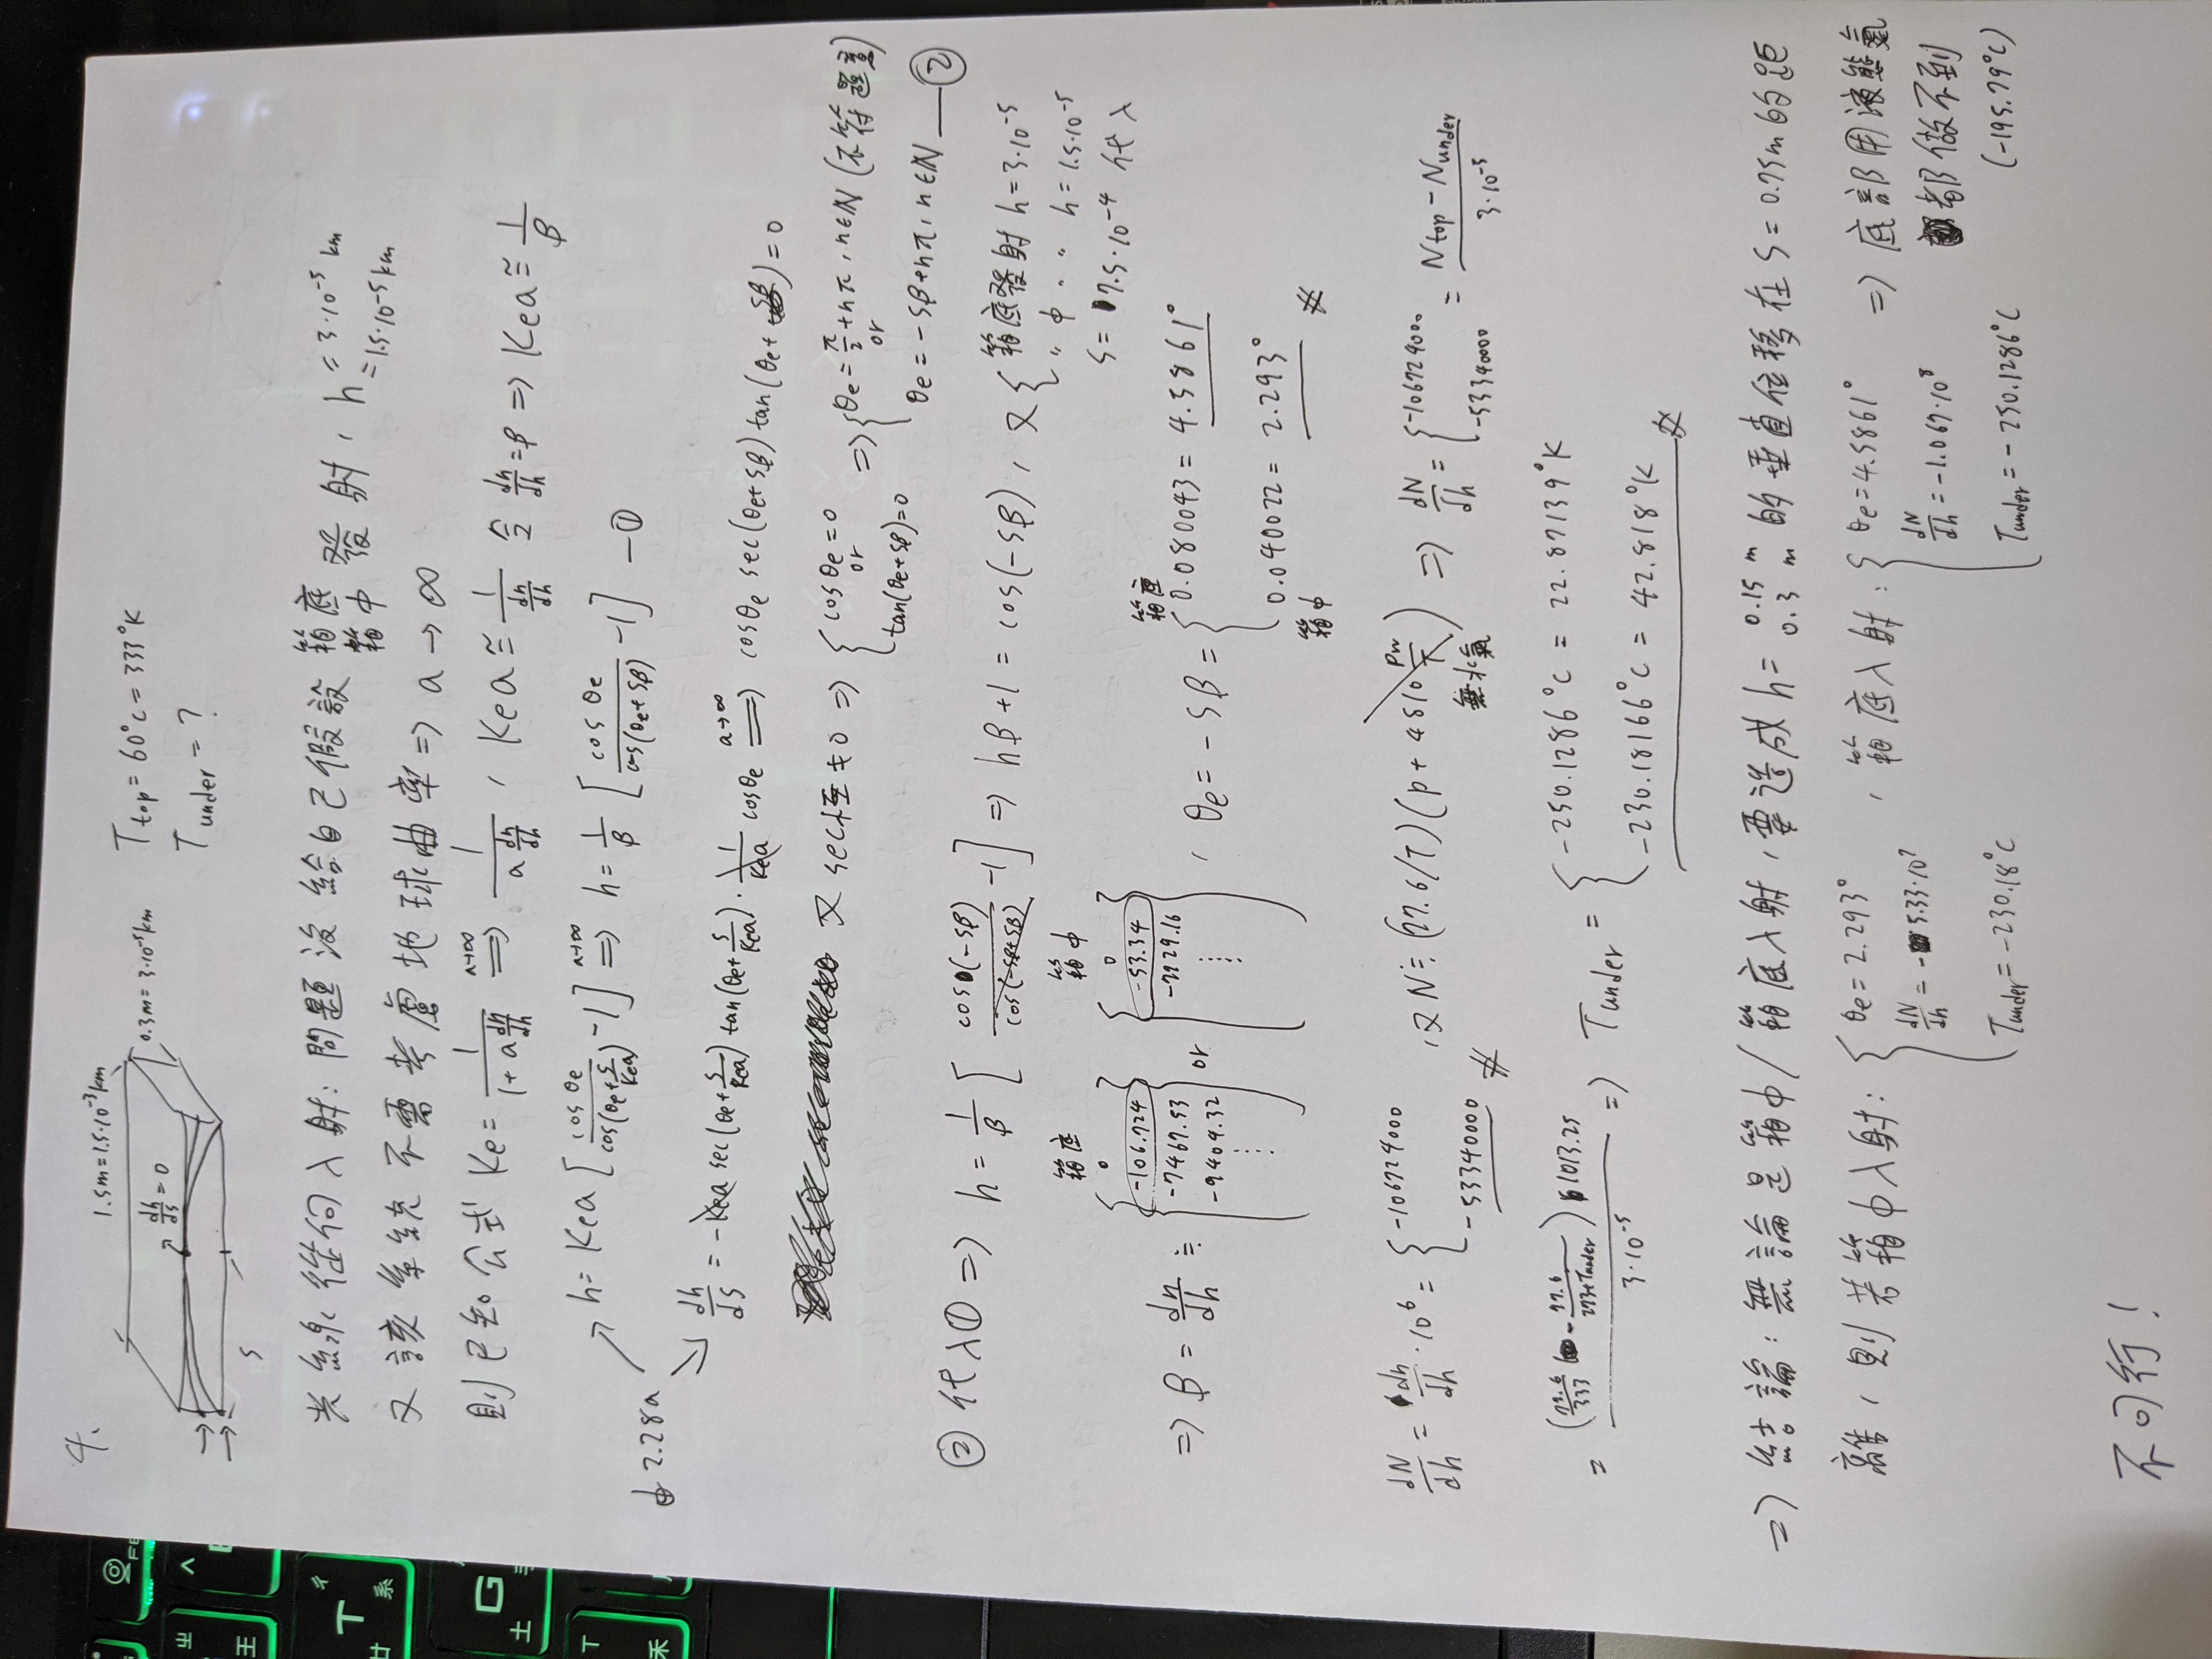 4.
1.5m=1.5·10⁻³km
dh/ds = 0
0.3m=3·10⁻⁵km
S
T top = 60°C = 333°K
T under = ?
光線從何入射:問題沒給自己假設 箱底 箱中 發射, h =3·10⁻⁵ km =1.5·10⁻⁵km
又該系統不需考慮地球曲率 => a → ∞
則已知公式 Ke = 1/(1+a dn/dh) =>(a→∞) 1/(a dn/dh), Kea ≅ 1/(dn/dh) 令 dn/dh = β => Kea ≅ 1/β
由 2.28a
h = Kea [cos θe/cos(θe+S/Kea) -1] =>(a→∞) h = 1/β [cos θe/cos(θe+Sβ) -1] —①
dh/ds = -Kea sec(θe+S/Kea) tan(θe+S/Kea) · 1/Kea cosθe =>(a→∞) cosθe sec(θe+Sβ) tan(θe+Sβ) = 0
又 sec恆≠0 => { cosθe=0 or tan(θe+Sβ)=0 => { θe = π/2 + nπ, n∈N (不符題意) or θe = -Sβ+nπ, n∈N —②
②代入① => h = 1/β [cos(-Sβ)/cos(-Sβ+Sβ) -1] => hβ+1 = cos(-Sβ), 又 { 箱底發射 h=3·10⁻⁵
〃 中 〃 〃 h=1.5·10⁻⁵
S= 7.5·10⁻⁴ 代入
箱底 箱中
=> β = dn/dh ≒ { 0 -106.724 -7467.53 -9404.32 ⋮ } or { 0 -53.34 -7729.16 ⋮ }, θe = -Sβ = { 箱底 0.080043 = 4.5861°
0.040022 = 2.293° #
箱中
dN/dh = dn/dh · 10⁶ = { -106724000 -53340000 #, 又 N ≒ (77.6/T)(p + 4810 pw/T) 無水氣 => dN/dh = { -106724000 -53340000 = (Ntop - Nunder)/3·10⁻⁵
= (77.6/333 - 77.6/(273+Tunder)) 1013.25 / 3·10⁻⁵ => Tunder = { -250.1286°C = 22.87139°K
-230.18166°C = 42.818°K #
=> 結論:無論是箱中/箱底入射,要造成 h= 0.15 m 0.3 m 的垂直位移在 S=0.75m的距
離,則若箱中入射: { θe=2.293° dN/dh = -5.33·10⁷ Tunder=-230.18°C , 箱底入射: { θe=4.5861° dN/dh=-1.067·10⁸ Tunder=-250.1286°C => 底部用液態氮
都做不到
(-195.79°C)
不可行!